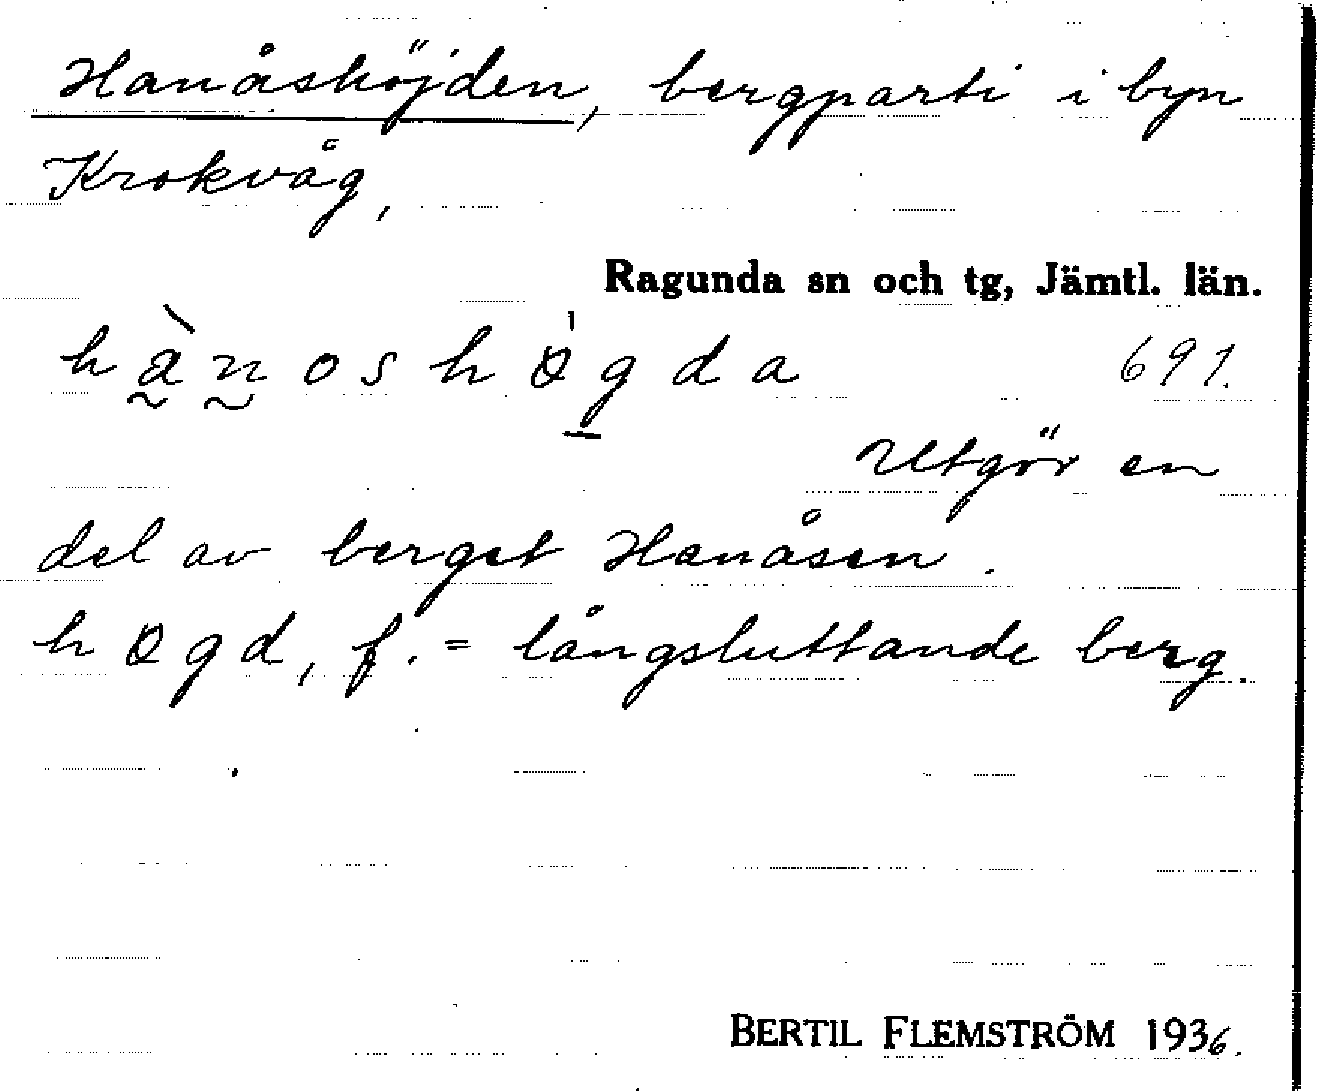 Hanåshöjden, bergparti i byn
Krokvåg,
Ragunda sn och tg, Jämtl. län.
hànoshøgda 691.
Utgör en
del av berget Hanåsen.
høgd, f. = långsluttande berg.
BERTIL FLEMSTRÖM 1936.